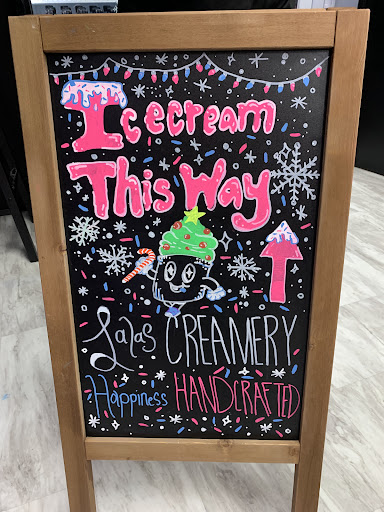 Icecream
This Way
Lalas CREAMERY
Happiness HANDCRAFTED